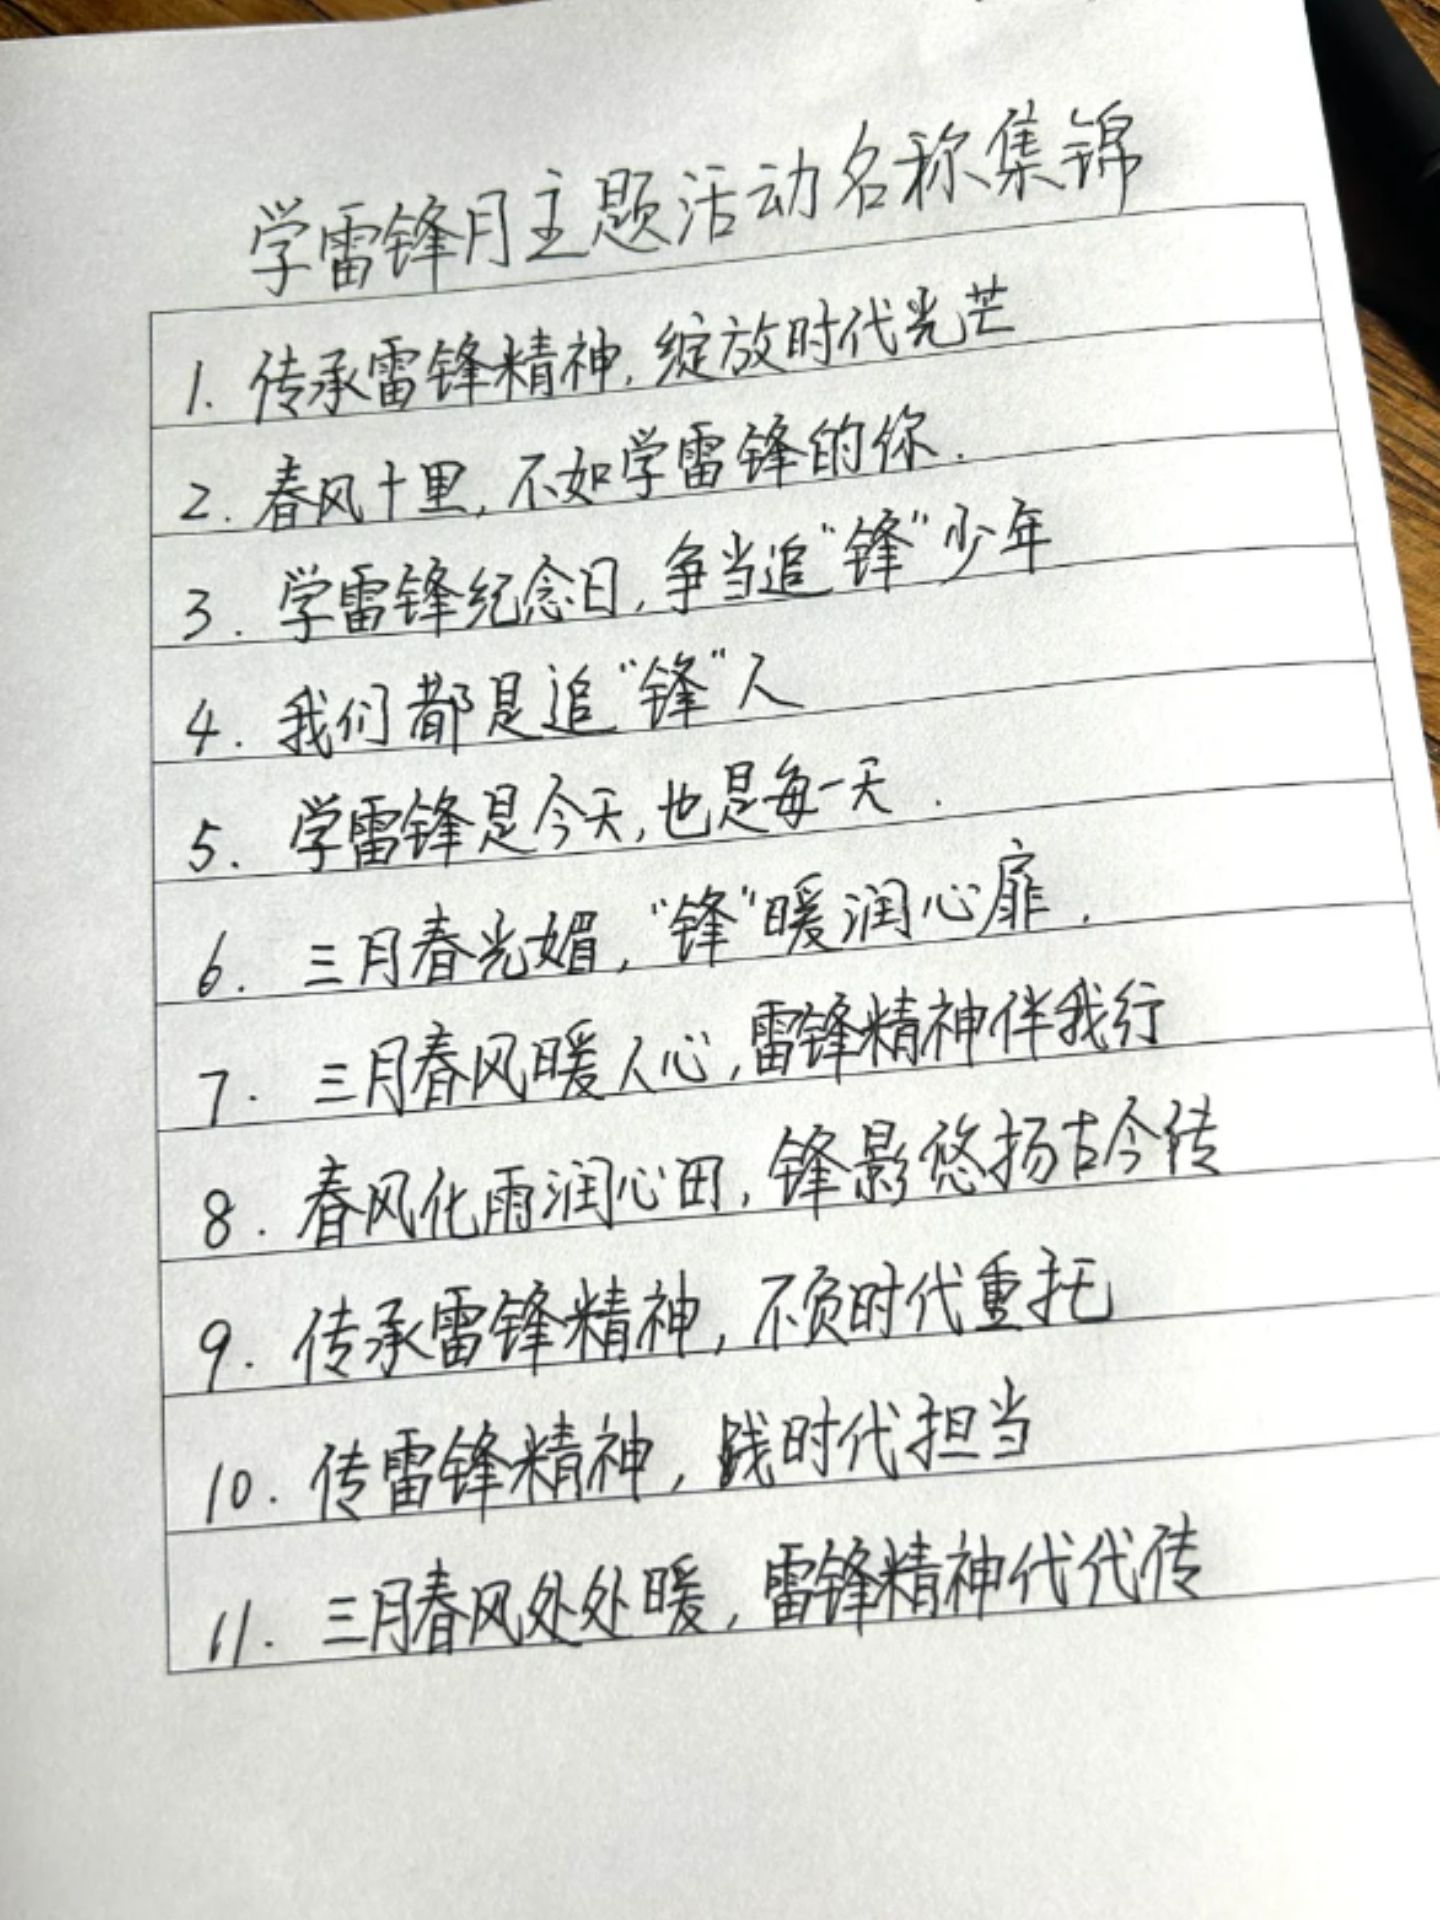 学雷锋月主题活动名称集锦
1. 传承雷锋精神,绽放时代光芒
2. 春风十里,不如学雷锋的你.
3. 学雷锋纪念日,争当追“锋”少年
4. 我们都是追“锋”人
5. 学雷锋是今天,也是每一天.
6. 三月春光媚,“锋”暖润心扉.
7. 三月春风暖人心,雷锋精神伴我行
8. 春风化雨润心田,锋影悠扬古今传
9. 传承雷锋精神,不负时代重托
10. 传雷锋精神,践时代担当
11. 三月春风处处暖,雷锋精神代代传